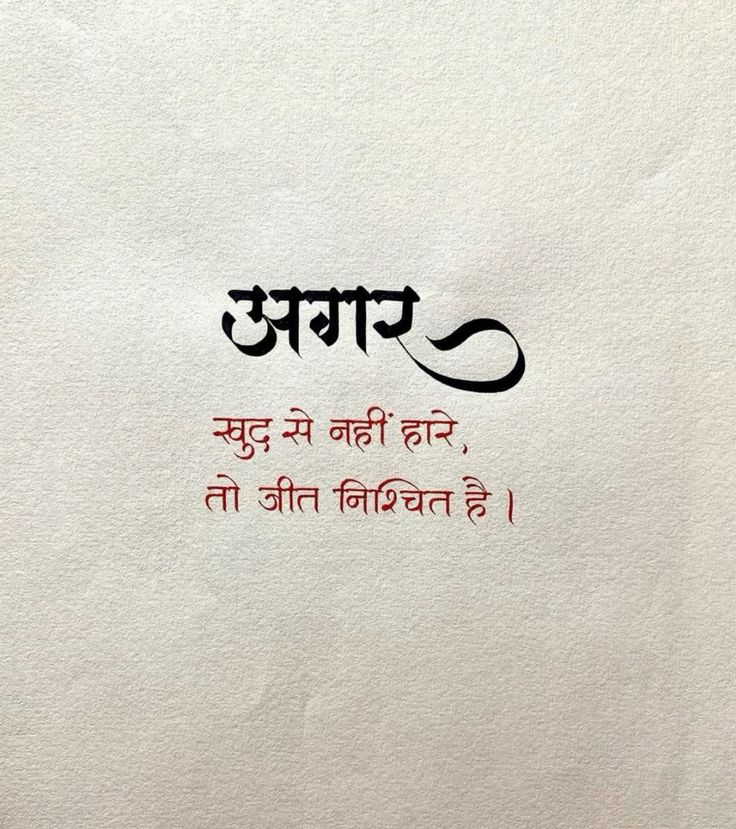 अगर
खुद से नहीं हारे,
तो जीत निश्चित है।